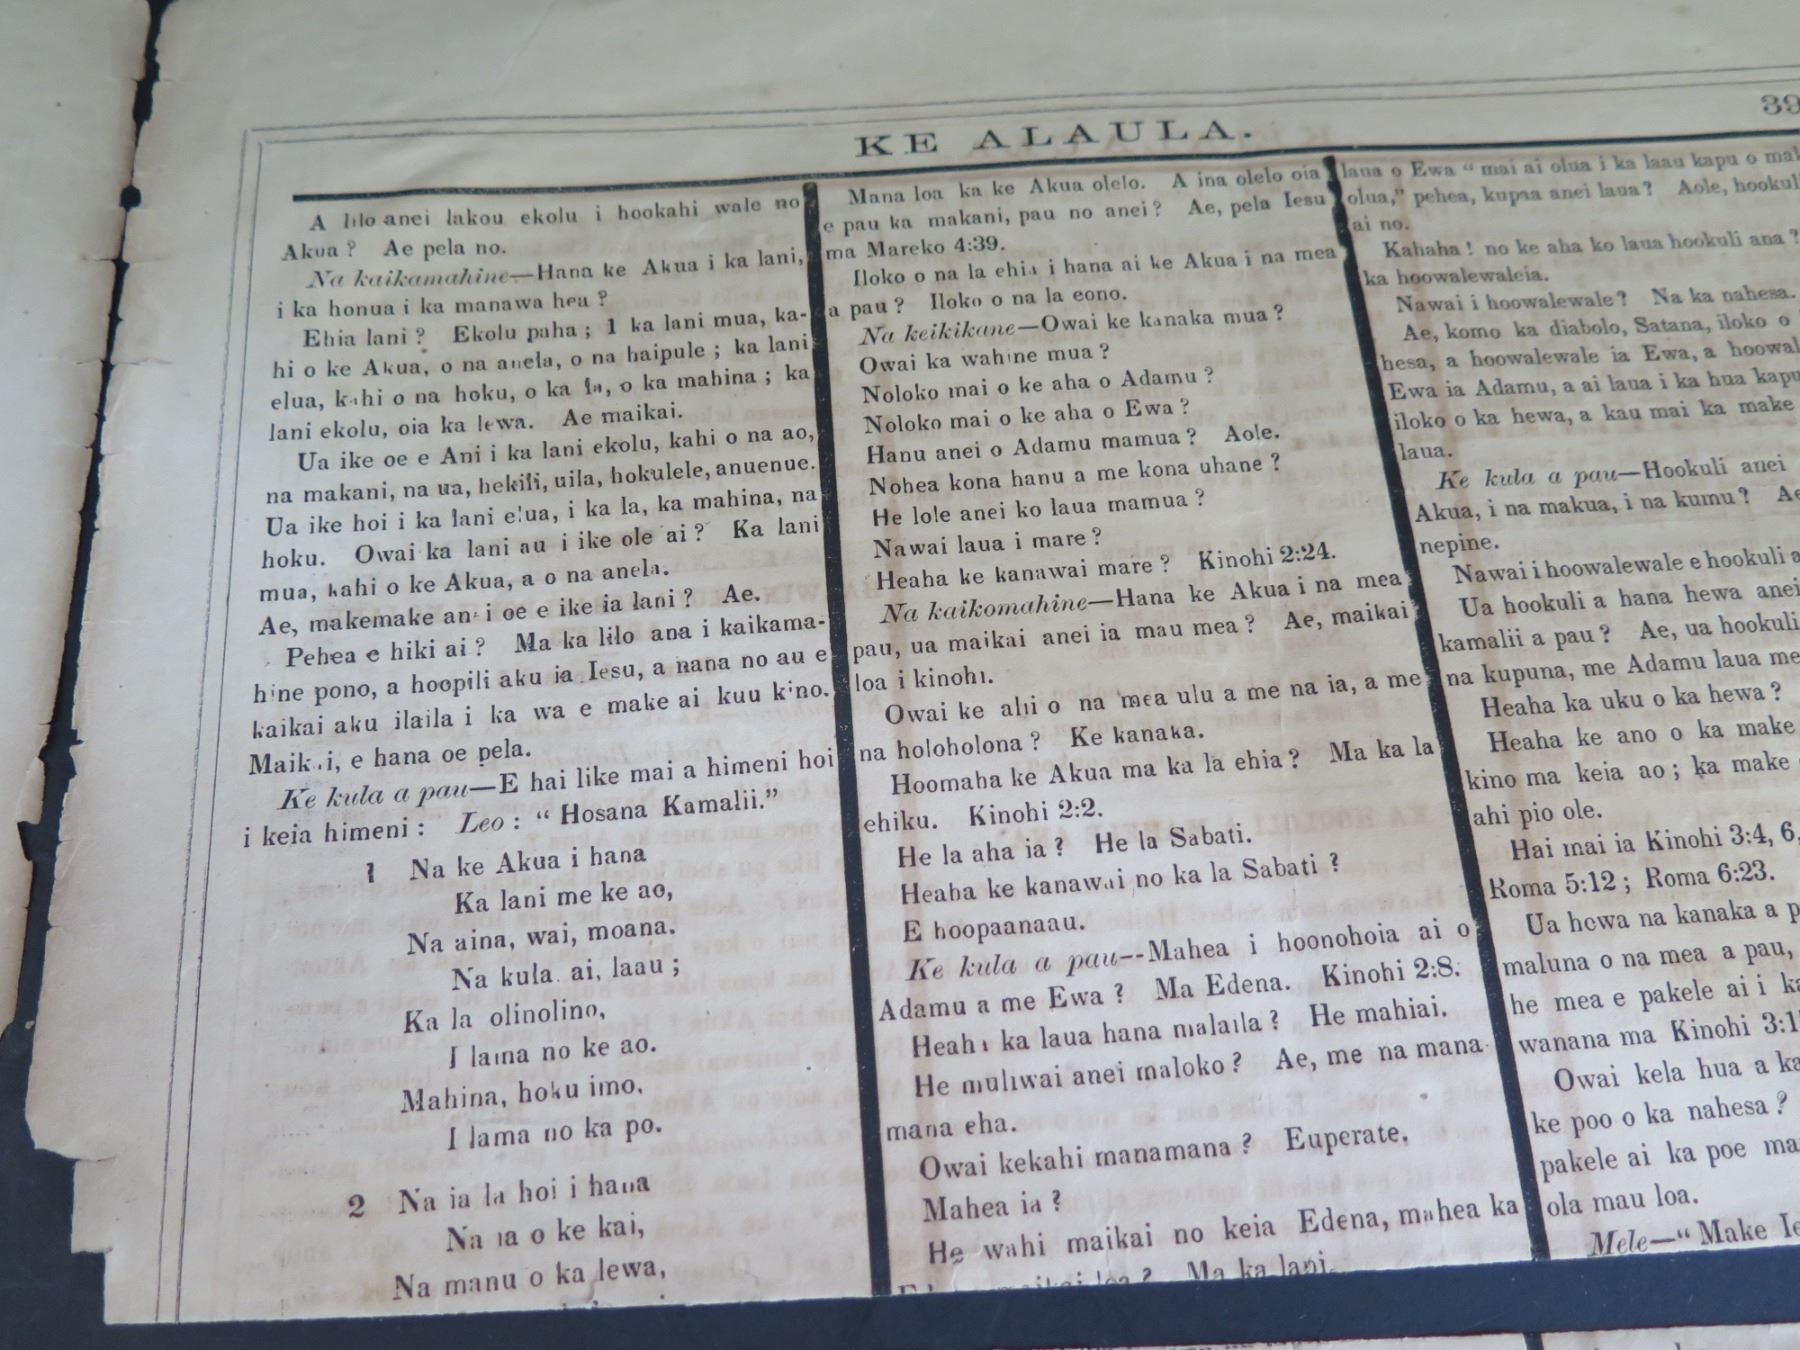 KE ALAULA.
39
A lilo anei lakou ekolu i hookahi wale no
Akua? Ae pela no.
Na kaikamahine—Hana ke Akua i ka lani,
i ka honua i ka manawa hea?
Ehia lani? Ekolu paha; 1 ka lani mua, ka-
hi o ke Akua, o na anela, o na haipule; ka lani
elua, kahi o na hoku, o ka la, o ka mahina; ka
lani ekolu, oia ka lewa. Ae maikai.
Ua ike oe e Ani i ka lani ekolu, kahi o na ao,
na makani, na ua, hekili, uila, hokulele, anuenue.
Ua ike hoi i ka lani elua, i ka la, ka mahina, na
hoku. Owai ka lani au i ike ole ai? Ka lani
mua, kahi o ke Akua, a o na anela.
Ae, makemake anei oe e ike ia lani? Ae.
Pehea e hiki ai? Ma ka lilo ana i kaikama-
hine pono, a hoopili aku ia Iesu, a nana no au e
kaikai aku ilaila i ka wa e make ai kuu kino.
Maikai, e hana oe pela.
Ke kula a pau—E hai like mai a himeni hoi
i keia himeni: Leo: “Hosana Kamalii.”
1 Na ke Akua i hana
Ka lani me ke ao,
Na aina, wai, moana.
Na kula ai, laau;
Ka la olinolino,
I lama no ke ao.
Mahina, hoku imo,
I lama no ka po.
2 Na ia la hoi i hana
Na ia o ke kai,
Na manu o ka lewa,
Mana loa ka ke Akua olelo. A ina olelo oia
e pau ka makani, pau no anei? Ae, pela Iesu
ma Mareko 4:39.
Iloko o na la ehia i hana ai ke Akua i na mea
a pau? Iloko o na la eono.
Na keikikane—Owai ke kanaka mua?
Owai ka wahine mua?
Noloko mai o ke aha o Adamu?
Noloko mai o ke aha o Ewa?
Hanu anei o Adamu mamua? Aole.
Nohea kona hanu a me kona uhane?
He lole anei ko laua mamua?
Nawai laua i mare?
Heaha ke kanawai mare? Kinohi 2:24.
Na kaikomahine—Hana ke Akua i na mea
pau, ua maikai anei ia mau mea? Ae, maikai
loa i kinohi.
Owai ke alii o na mea ulu a me na ia, a me
na holoholona? Ke kanaka.
Hoomaha ke Akua ma ka la ehia? Ma ka la
ehiku. Kinohi 2:2.
He la aha ia? He la Sabati.
Heaha ke kanawai no ka la Sabati?
E hoopaanaau.
Ke kula a pau--Mahea i hoonohoia ai o
Adamu a me Ewa? Ma Edena. Kinohi 2:8.
Heaha ka laua hana malaila? He mahiai.
He muliwai anei maloko? Ae, me na mana-
mana eha.
Owai kekahi manamana? Euperate.
Mahea ia?
He wahi maikai no keia Edena, mahea ka
maikai loa? Ma ka lani.
laua o Ewa “mai ai olua i ka laau kapu o
olua,” pehea, kupaa anei laua? Aole,
ai no.
Kahaha! no ke aha ko laua hookuli ana?
ka hoowalewaleia.
Nawai i hoowalewale? Na ka nahesa.
Ae, komo ka diabolo, Satana, iloko o
hesa, a hoowalewale ia Ewa, a
Ewa ia Adamu, a ai laua i ka hua kapu
iloko o ka hewa, a kau mai ka make
laua.
Ke kula a pau—Hookuli anei
Akua, i na makua, i na kumu?
nepine.
Nawai i hoowalewale e hookuli
Ua hookuli a hana hewa anei
kamalii a pau? Ae, ua hookuli
na kupuna, me Adamu laua me
Heaha ka uku o ka hewa?
Heaha ke ano o ka make
kino ma keia ao; ka make
ahi pio ole.
Hai mai ia Kinohi 3:4, 6,
Roma 5:12; Roma 6:23.
Ua hewa na kanaka a
maluna o na mea a pau,
he mea e pakele ai i
wanana ma Kinohi
Owai kela hua a
ke poo o ka nahesa?
pakele ai ka poe
ola mau loa.
Mele—“Make